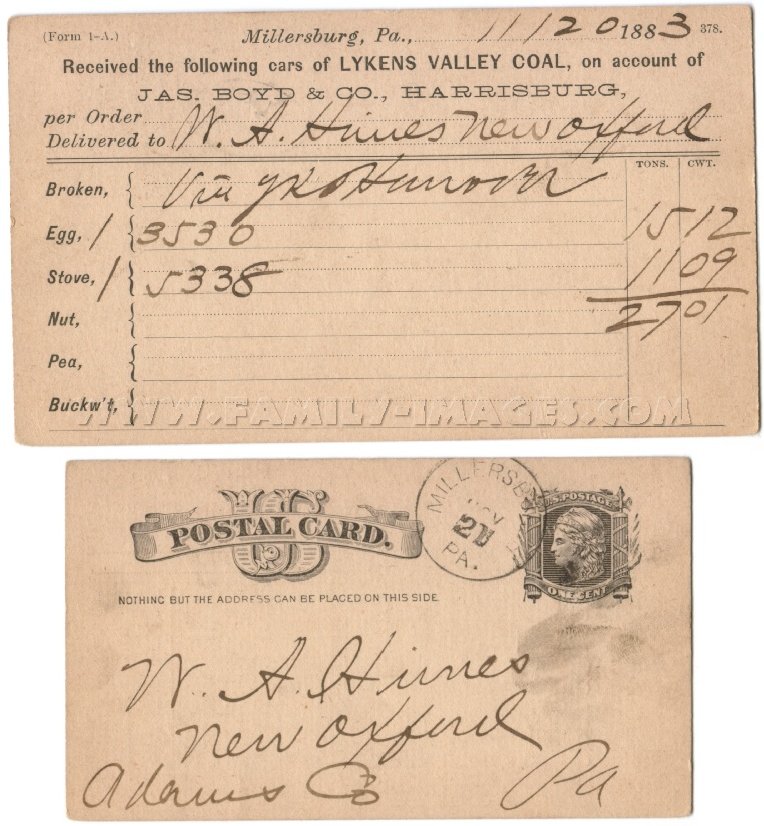 (Form 1-A.) Millersburg, Pa., 11/20 1883 378.
Received the following cars of LYKENS VALLEY COAL, on account of
JAS. BOYD & CO., HARRISBURG,
per Order
Delivered to W. A. Himes New Oxford
TONS. CWT.
Broken, { Via
Egg, 1 { 3530 15 12
Stove, 1 { 5338 11 09
27 01
Nut, {
Pea, {
Buckw't, {
WWW.FAMILY-IMAGES.COM
US
POSTAL CARD.
NOTHING BUT THE ADDRESS CAN BE PLACED ON THIS SIDE.
MILLERSB
NOV
21
PA.
U.S. POSTAGE
ONE CENT
W. A. Himes
New Oxford
Adams Co Pa